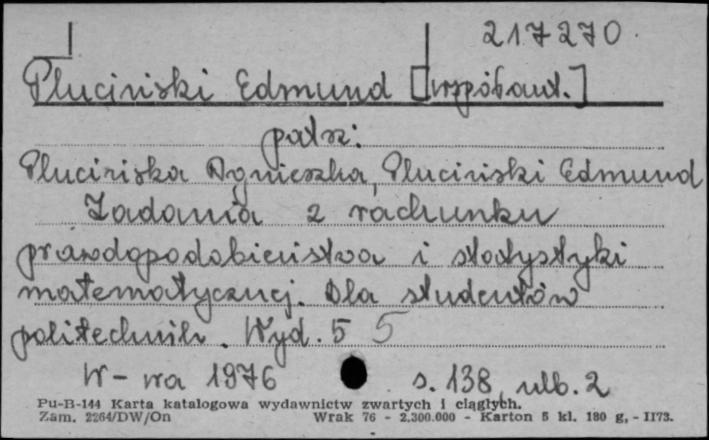 217270.
Pluciński Edmund [współaut.]
patrz:
Plucińska Agnieszka, Pluciński Edmund
Zadania z rachunku
prawdopodobieństwa i statystyki
matematycznej. Dla studentów
politechnik. Wyd. 5 5
W-wa 1976 s. 138, nlb. 2
Pu-B-144 Karta katalogowa wydawnictw zwartych i ciągłych.
Zam. 2264/DW/On Wrak 76 - 2.300.000 - Karton 5 kl. 180 g, - 1173.